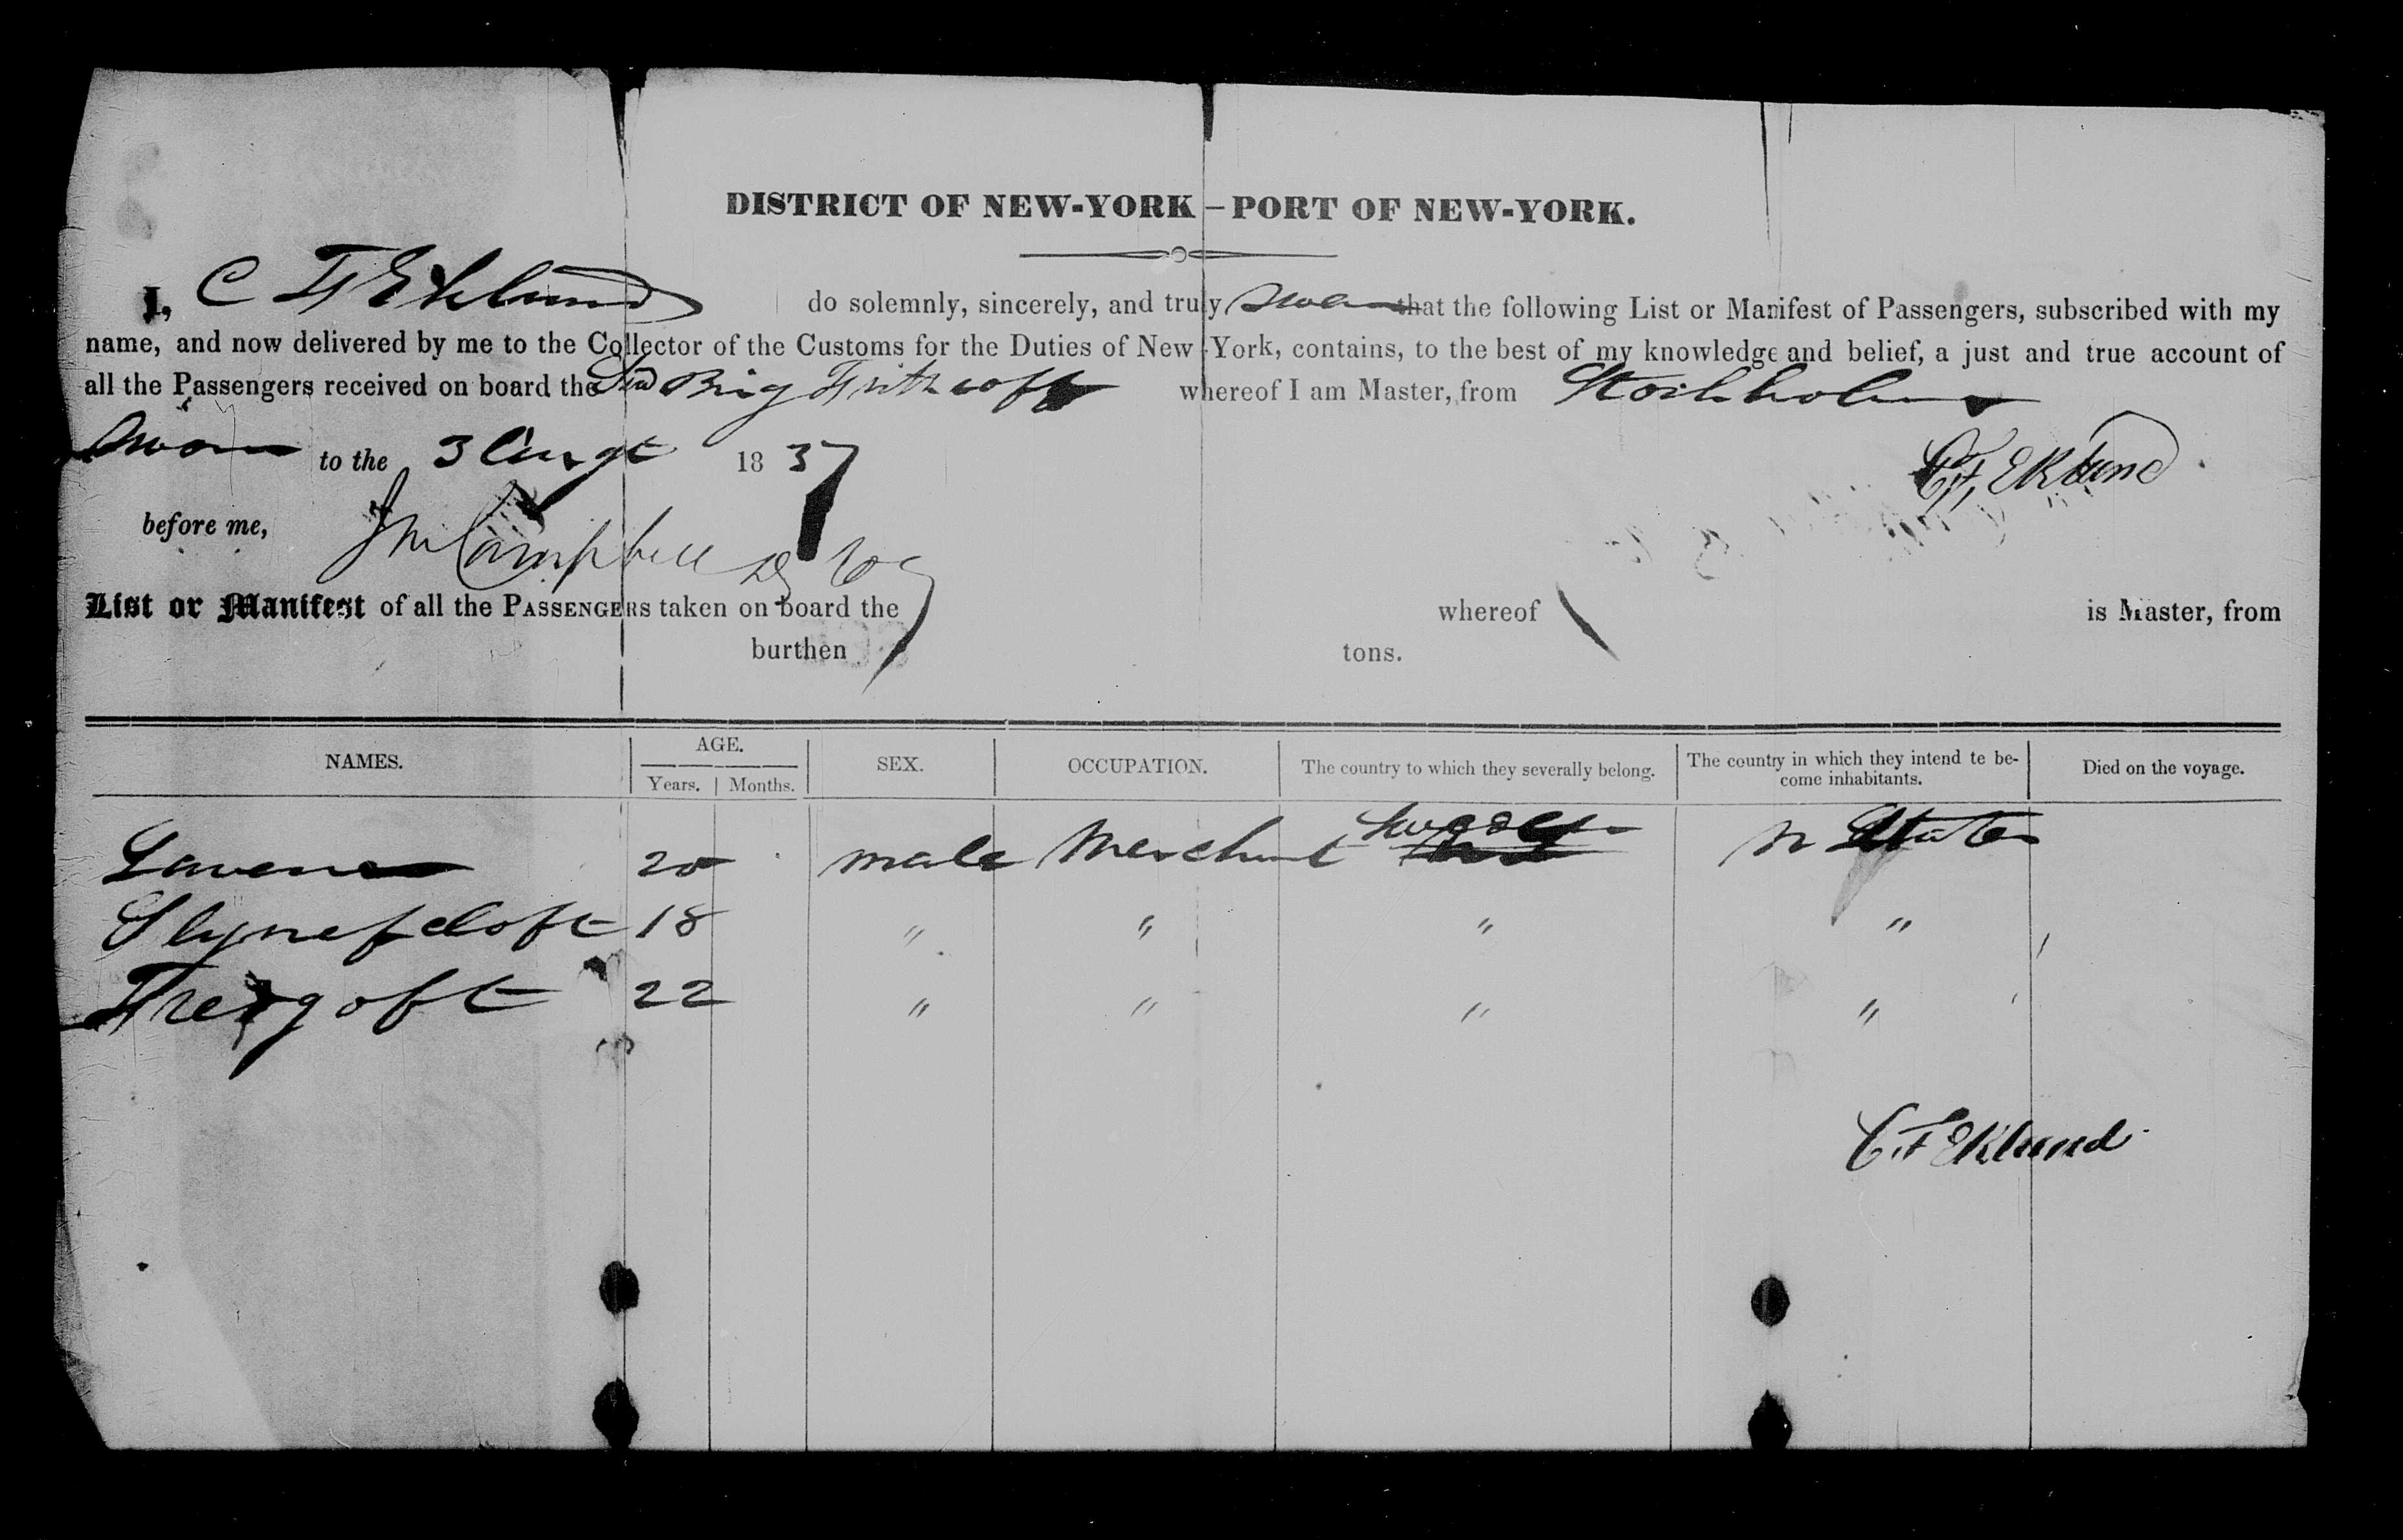 DISTRICT OF NEW-YORK—PORT OF NEW-YORK.
I, C F Eklund do solemnly, sincerely, and truly swear that the following List or Manifest of Passengers, subscribed with my
name, and now delivered by me to the Collector of the Customs for the Duties of New-York, contains, to the best of my knowledge and belief, a just and true account of
all the Passengers received on board the Swd Brig Frithcoff whereof I am Master, from Stockholm
Sworn to the 3 Augt 1837
C F Eklund
before me, Campbell
List or Manifest of all the PASSENGERS taken on board the whereof is Master, from
burthen tons.
NAMES. AGE. SEX. OCCUPATION. The country to which they severally belong. The country in which they intend te be-come inhabitants. Died on the voyage.
Years. Months.
20 male Merchant Sweden States
18 " " " "
22 " " " "
C F Eklund